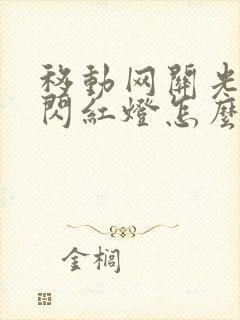 移動网關光
閃紅燈怎麼
金櫚